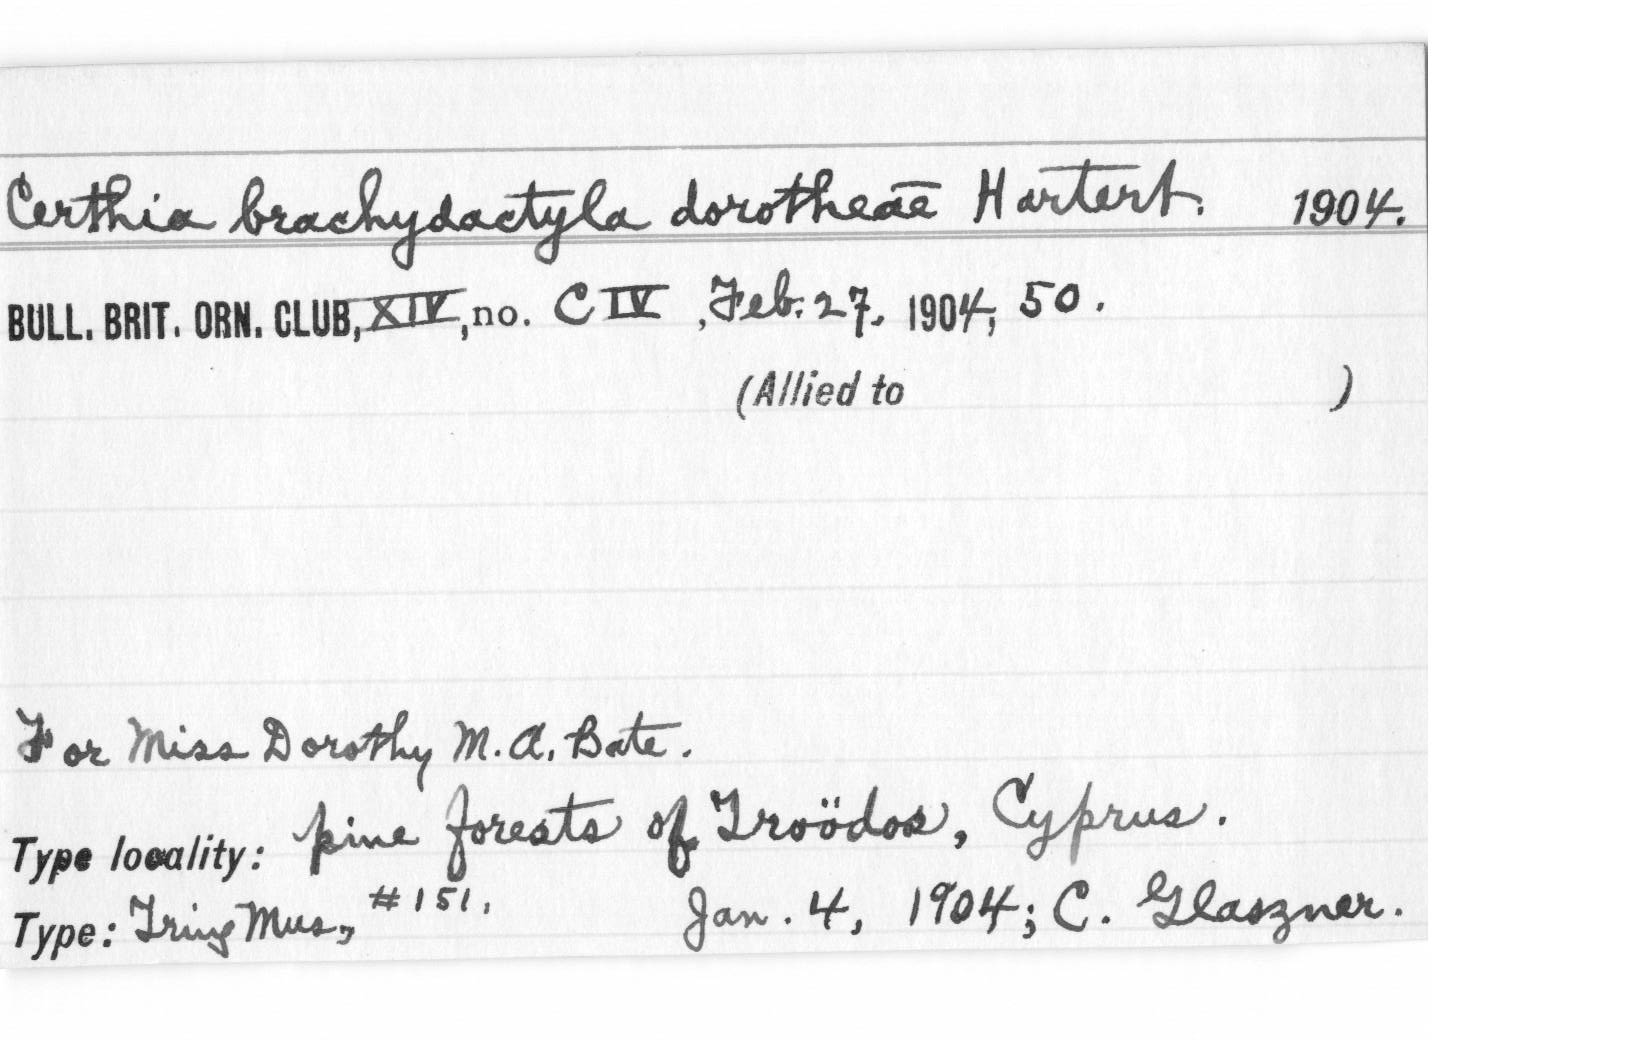 Certhia brachydactyla dorotheae Hartert. 1904.
BULL. BRIT. ORN. CLUB, XIV, no. CIV, Feb. 27, 1904, 50.
(Allied to )
For Miss Dorothy M. A. Bate.
Type locality: pine forests of Troödos, Cyprus.
Type: Tring Mus., #151. Jan. 4, 1904; C. Glaszner.